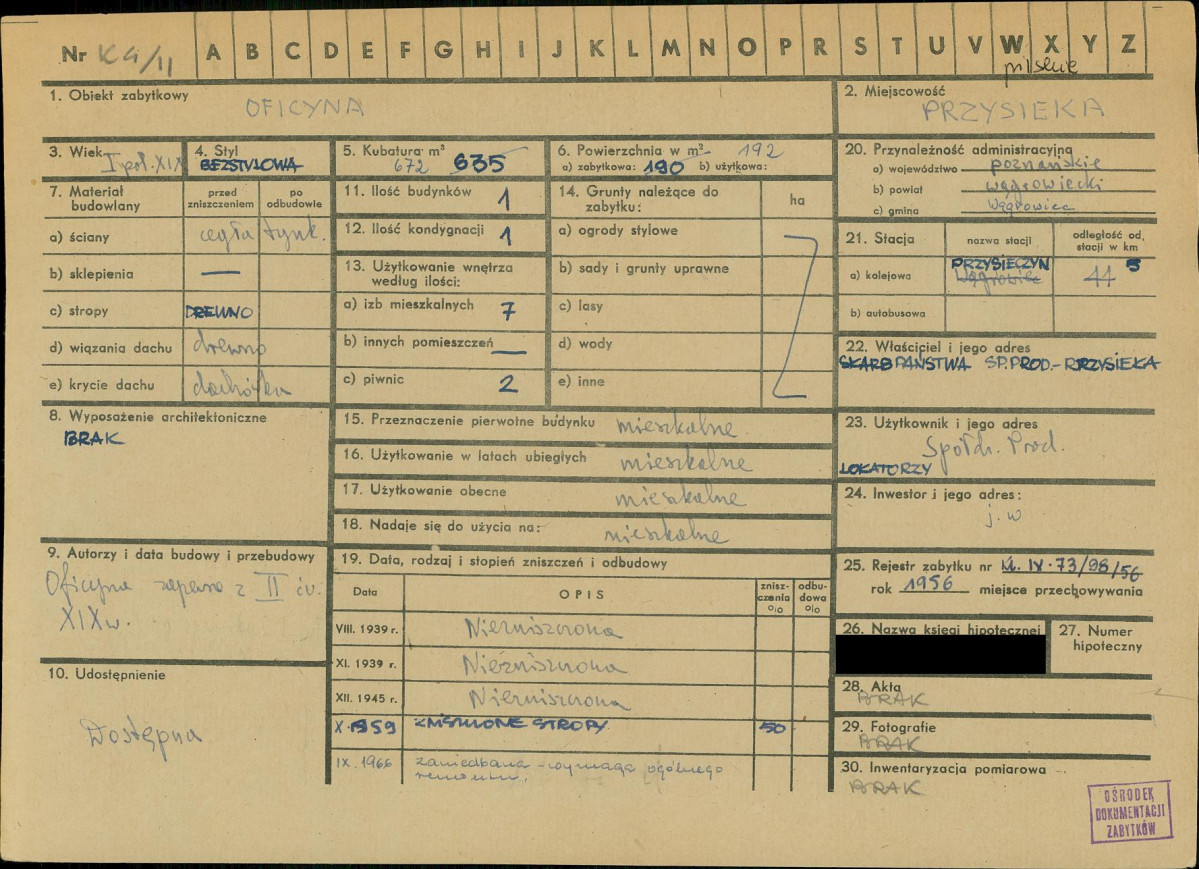 Nr K4/11 A B C D E F G H I J K L M N O P R S T U V W X Y Z
pilskie
1. Obiekt zabytkowy
OFICYNA
2. Miejscowość
PRZYSIEKA
3. Wiek
I poł. XIX
4. Styl
BEZSTYLOWA
5. Kubatura m³
672 635
6. Powierzchnia w m² 192
a) zabytkowa: 190 b) użytkowa:
20. Przynależność administracyjna
a) województwo poznańskie
b) powiat wągrowiecki
c) gmina Wągrowiec
7. Materiał budowlany
przed zniszczeniem
po odbudowie
a) ściany cegła tynk.
b) sklepienia —
c) stropy DREWNO
d) wiązania dachu drewno
e) krycie dachu dachówka
11. Ilość budynków 1
12. Ilość kondygnacji 1
13. Użytkowanie wnętrza według ilości:
a) izb mieszkalnych 7
b) innych pomieszczeń —
c) piwnic 2
14. Grunty należące do zabytku:
ha
a) ogrody stylowe
b) sady i grunty uprawne
c) lasy
d) wody
e) inne
21. Stacja
nazwa stacji
odległość od stacji w km
PRZYSIECZYN 5
a) kolejowa Wągrowiec 11
b) autobusowa
22. Właściciel i jego adres
SKARB PAŃSTWA SP. PROD. - PRZYSIEKA
8. Wyposażenie architektoniczne
BRAK
15. Przeznaczenie pierwotne budynku mieszkalne
16. Użytkowanie w latach ubiegłych mieszkalne
17. Użytkowanie obecne mieszkalne
18. Nadaje się do użycia na: mieszkalne
23. Użytkownik i jego adres
Spółdz. Prod.
LOKATORZY
24. Inwestor i jego adres:
j. w
9. Autorzy i data budowy i przebudowy
Oficyna zapewne z II ćw.
XIX w.
19. Data, rodzaj i stopień zniszczeń i odbudowy
Data
OPIS
zniszczenia %
odbudowa %
VIII. 1939 r. Niezniszczona
XI. 1939 r. Niezniszczona
XII. 1945 r. Niezniszczona
X 1959 ZNISZCZONE STROPY 50
IX. 1966 zaniedbana - wymaga ogólnego
remontu.
25. Rejestr zabytku nr K. IV. 73/98/56
rok 1956 miejsce przechowywania
26. Nazwa księgi hipotecznej
27. Numer hipoteczny
10. Udostępnienie
Dostępna
28. Akta
BRAK
29. Fotografie
BRAK
30. Inwentaryzacja pomiarowa
BRAK
OŚRODEK
DOKUMENTACJI
ZABYTKÓW